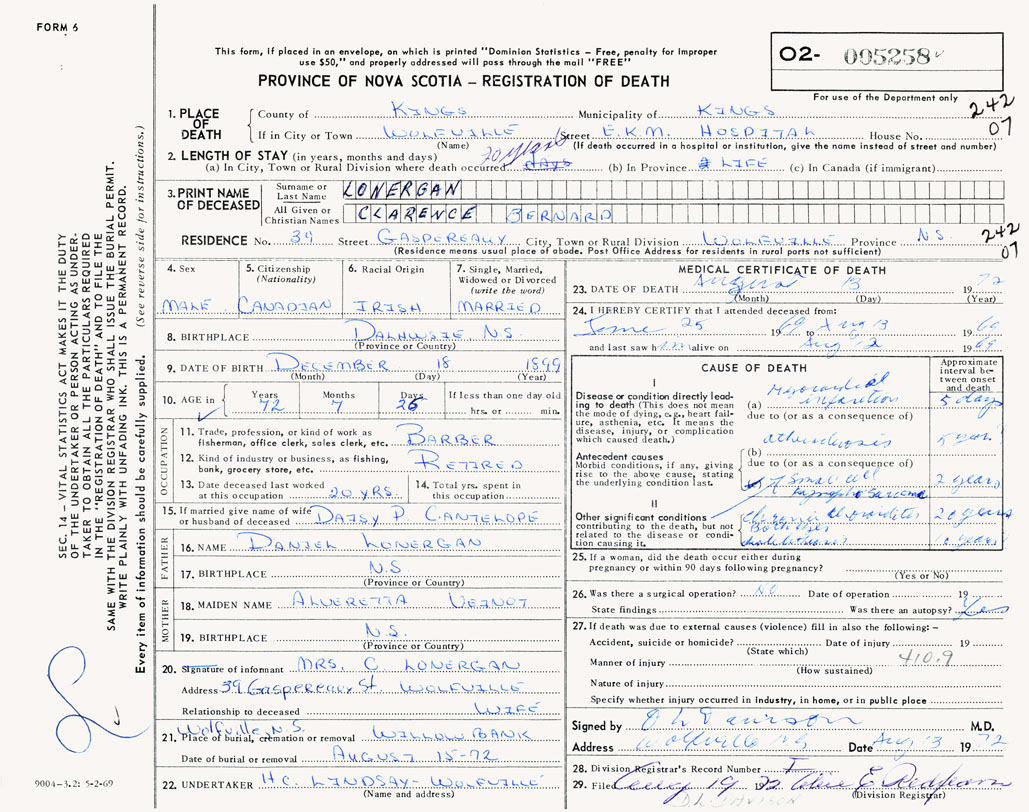 FORM 6
This form, if placed in an envelope, on which is printed "Dominion Statistics – Free, penalty for improper
use $50," and properly addressed will pass through the mail "FREE"
PROVINCE OF NOVA SCOTIA – REGISTRATION OF DEATH
O2- 005258
For use of the Department only
242
07
1. PLACE OF DEATH
County of KINGS Municipality of KINGS
If in City or Town WOLFVILLE Street E.K.M. HOSPITAL House No.
(Name) (If death occurred in a hospital or institution, give the name instead of street and number)
2. LENGTH OF STAY (in years, months and days)
(a) In City, Town or Rural Division where death occurred 20 years days (b) In Province LIFE (c) In Canada (if immigrant)
3. PRINT NAME OF DECEASED
Surname or Last Name LONERGAN
All Given or Christian Names CLARENCE BERNARD
RESIDENCE No. 39 Street GASPEREAUX City, Town or Rural Division WOLFVILLE Province N.S.
(Residence means usual place of abode. Post Office Address for residents in rural parts not sufficient)
242
07
4. Sex MALE
5. Citizenship (Nationality) CANADIAN
6. Racial Origin IRISH
7. Single, Married, Widowed or Divorced (write the word) MARRIED
8. BIRTHPLACE DALHUSIE, N.S.
(Province or Country)
9. DATE OF BIRTH DECEMBER 18 1899
(Month) (Day) (Year)
10. AGE in Years 72 Months 7 Days 26 If less than one day old hrs. or min.
OCCUPATION
11. Trade, profession, or kind of work as fisherman, office clerk, sales clerk, etc. BARBER
12. Kind of industry or business, as fishing, bank, grocery store, etc. RETIRED
13. Date deceased last worked at this occupation 20 YRS.
14. Total yrs. spent in this occupation
15. If married give name of wife or husband of deceased DAISY P CANTELOPE
FATHER
16. NAME DANIEL LONERGAN
17. BIRTHPLACE N.S.
(Province or Country)
MOTHER
18. MAIDEN NAME ALVERETTA VEINOT
19. BIRTHPLACE N.S.
(Province or Country)
20. Signature of informant MRS. C. LONERGAN
Address 39 Gaspereau St. WOLFVILLE
Relationship to deceased WIFE
Wolfville, N.S.
21. Place of burial, cremation or removal WILLOW BANK
Date of burial or removal AUGUST 15-72
22. UNDERTAKER H.C. LINDSAY- WOLFVILLE
(Name and address)
MEDICAL CERTIFICATE OF DEATH
23. DATE OF DEATH August 13 1972
(Month) (Day) (Year)
24. I HEREBY CERTIFY that I attended deceased from:
June 25 1969 to Aug 13 1969
and last saw him alive on Aug 12 1969
CAUSE OF DEATH
Approximate interval between onset and death
I
Disease or condition directly leading to death (This does not mean the mode of dying, e.g., heart failure, asthenia, etc. It means the disease, injury, or complication which caused death.)
(a) Myocardial infarction 5 days
due to (or as a consequence of)
Antecedent causes
Morbid conditions, if any, giving rise to the above cause, stating the underlying condition last.
(b) 5 years
due to (or as a consequence of)
Small cell 2 years
II
Other significant conditions contributing to the death, but not related to the disease or condition causing it.
Chronic 20 years
years
25. If a woman, did the death occur either during pregnancy or within 90 days following pregnancy?
(Yes or No)
26. Was there a surgical operation? NO Date of operation 19
State findings Was there an autopsy? Yes
27. If death was due to external causes (violence) fill in also the following: –
Accident, suicide or homicide? Date of injury 19
(State which)
410.9
Manner of injury
(How sustained)
Nature of injury
Specify whether injury occurred in industry, in home, or in public place
Signed by M.D.
Address Wolfville NS Date Aug 13 1972
28. Division Registrar's Record Number
29. Filed Aug 19 1972 E. Redfearn
(Division Registrar)
D L DAVISON
SEC. 14 – VITAL STATISTICS ACT MAKES IT THE DUTY
OF THE UNDERTAKER OR PERSON ACTING AS UNDER-
TAKER TO OBTAIN ALL THE PARTICULARS REQUIRED
IN THE "REGISTRATION OF DEATH" AND TO FILE THE
SAME WITH THE DIVISION REGISTRAR WHO SHALL ISSUE THE BURIAL PERMIT.
WRITE PLAINLY WITH UNFADING INK. THIS IS A PERMANENT RECORD.
Every item of information should be carefully supplied. (See reverse side for instructions.)
9004-3.2: 5-2-69